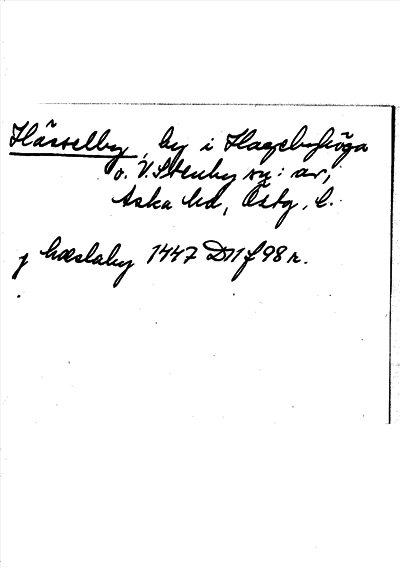 Hässelby, by i Hagebyhöga
o. V. Stenby sn:ar,
Aska hd, Östg. l.
j hæslaby 1447 D11 f 98 r.